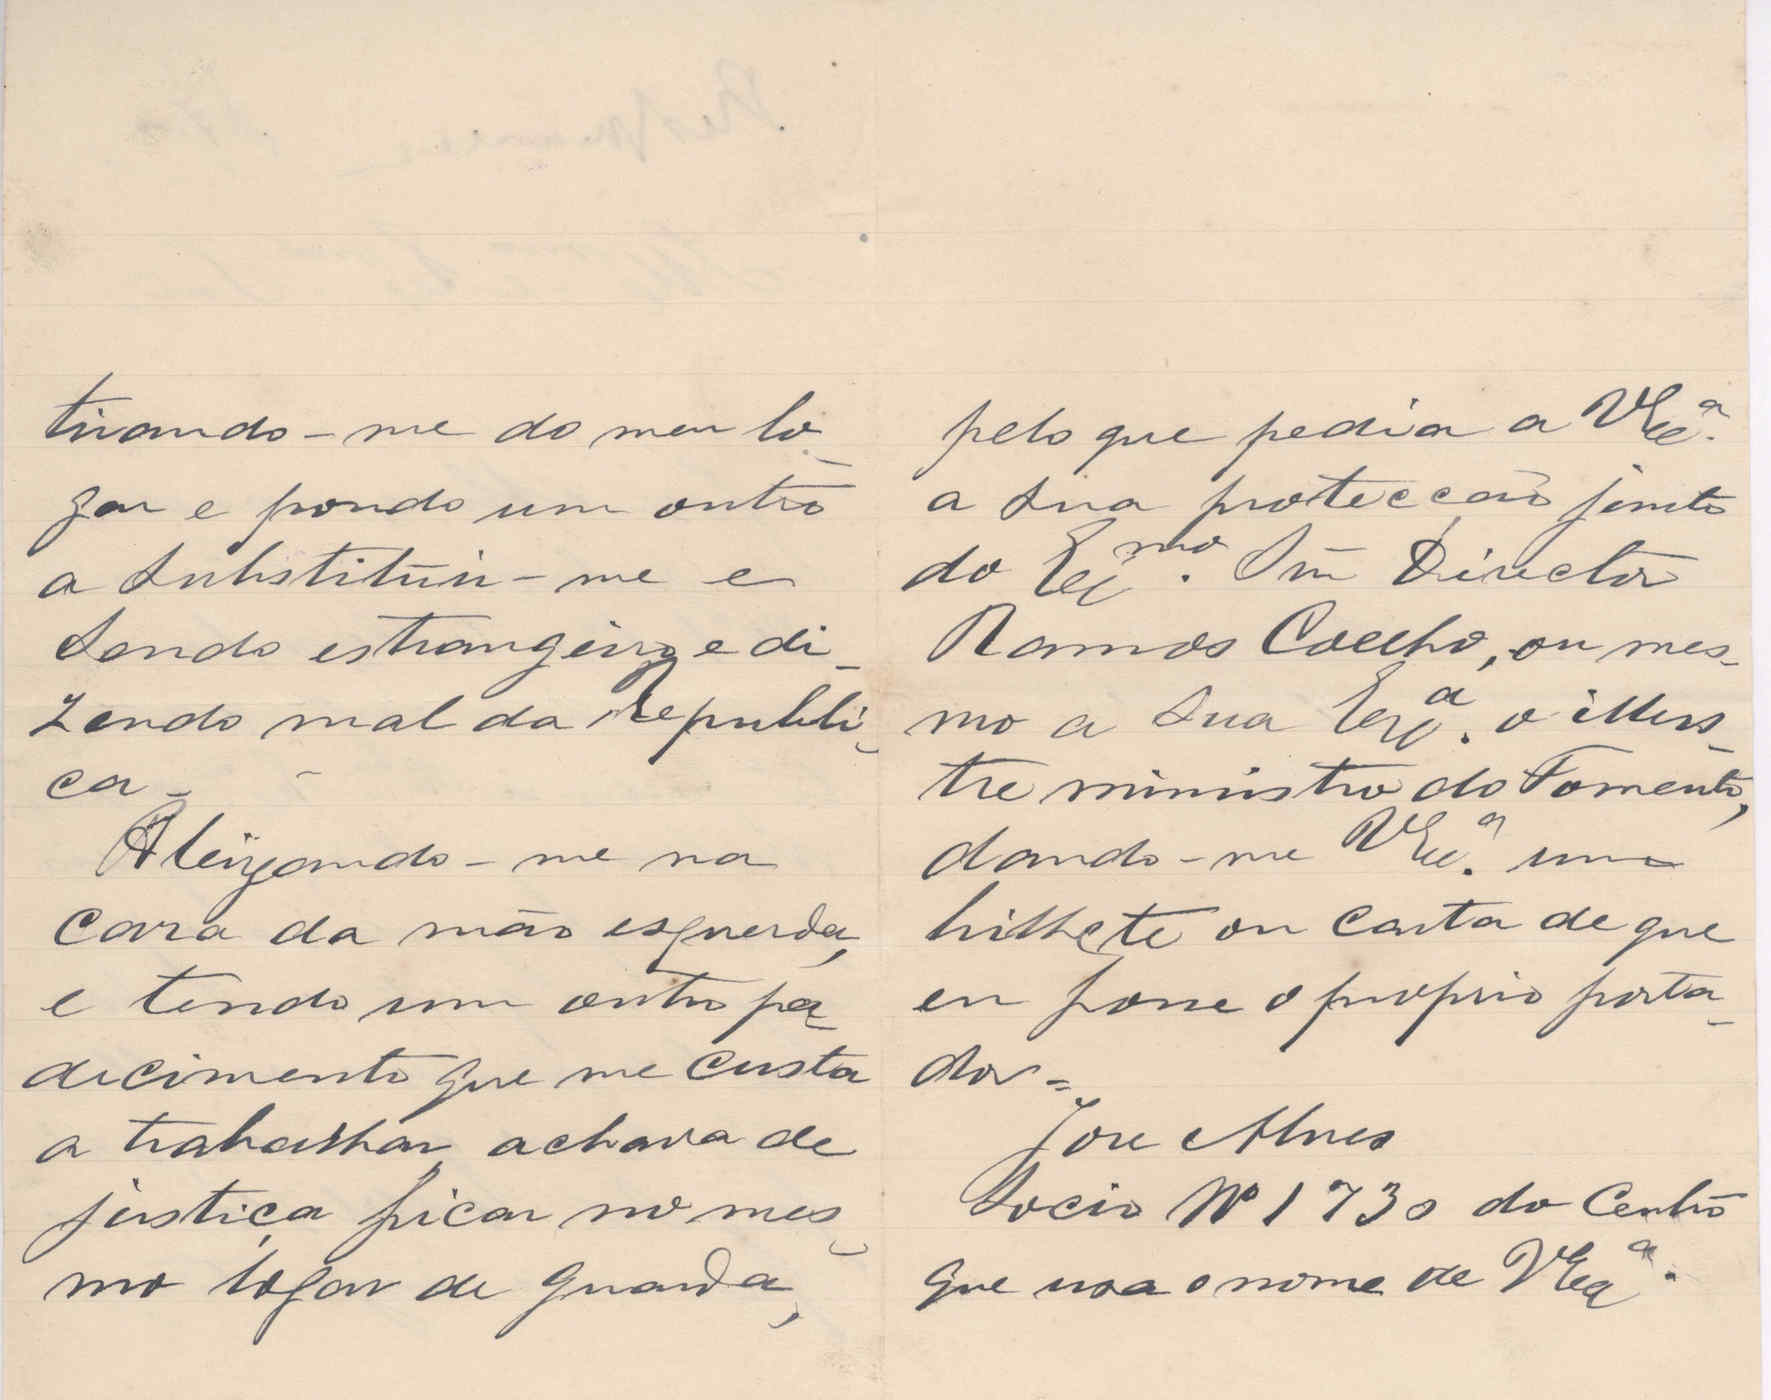 tirando-me do meu lo-
gar e pondo um outro
a substituir-me e
sendo estrangeiro e di-
zendo mal da Republi-
ca-
Aleijando-me na
cara da mão esquerda,
e tendo um outro pa-
decimento que me custa
a trabalhar, achava de
justiça ficar no mes-
mo logar de guarda,
pelo que pedia a VExª.
a sua protecção junto
do Exmo. Snr Director
Ramos Coelho, ou mes-
mo a sua Exª. o illus-
tre ministro do Fomento,
dando-me VExª. um
bilhete ou carta de que
eu fosse o proprio porta-
dor=
José Alves
Socio Nº 1730 do Centro
que usa o nome de VExª.